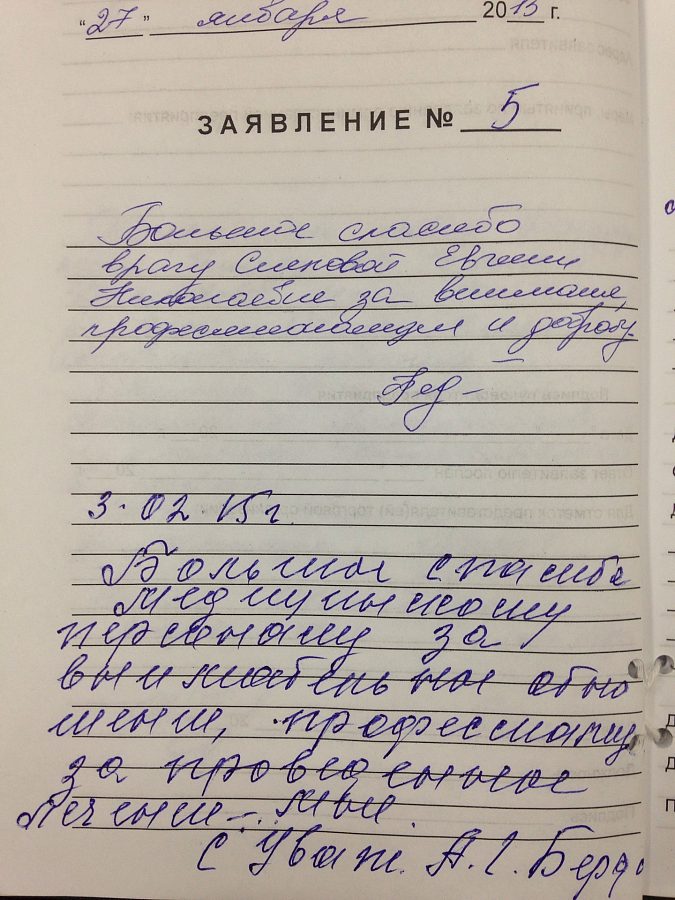 "27" января 2015 г.
ЗАЯВЛЕНИЕ № 5
Большое спасибо
врачу Евгении
Николаевне за внимание,
профессионализм и доброту.
3.02.15 г.
Большое спасибо
медицинскому
персоналу за
внимательное отно
шение,
за проведенное
лечение
С Уваж. А.